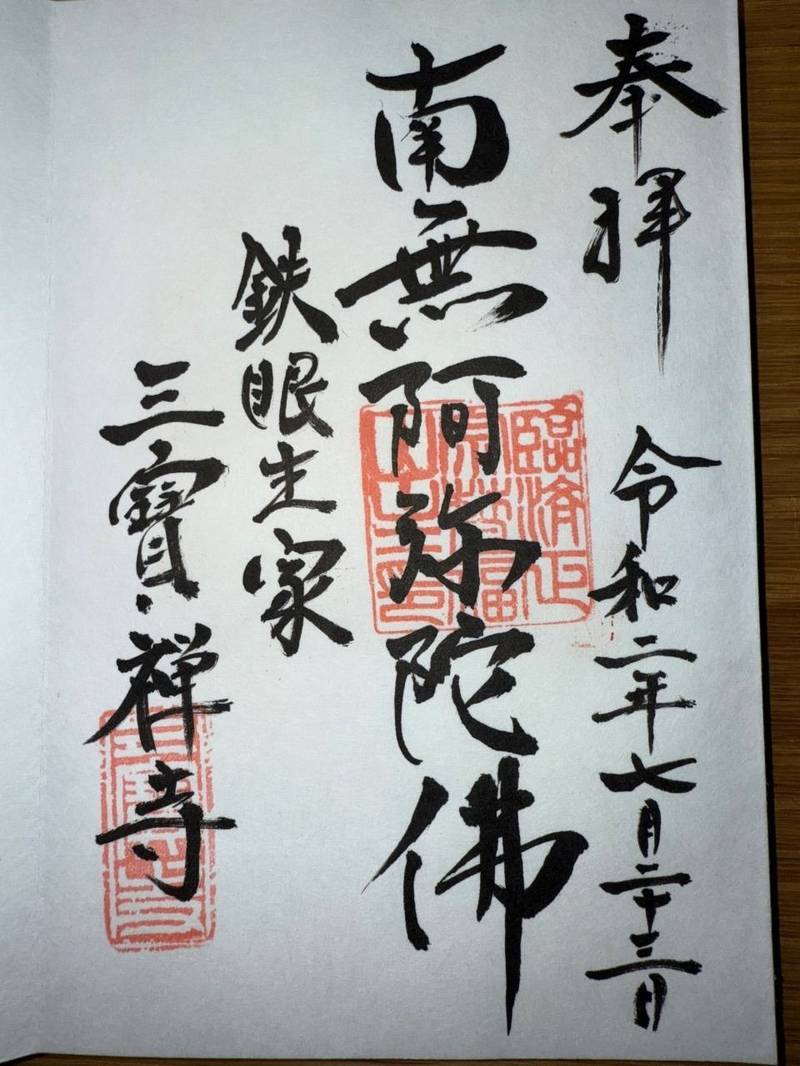 奉拝
令和二年七月二十三日
南無阿弥陀佛
臨済正
鉄眼生家
三寶禅寺